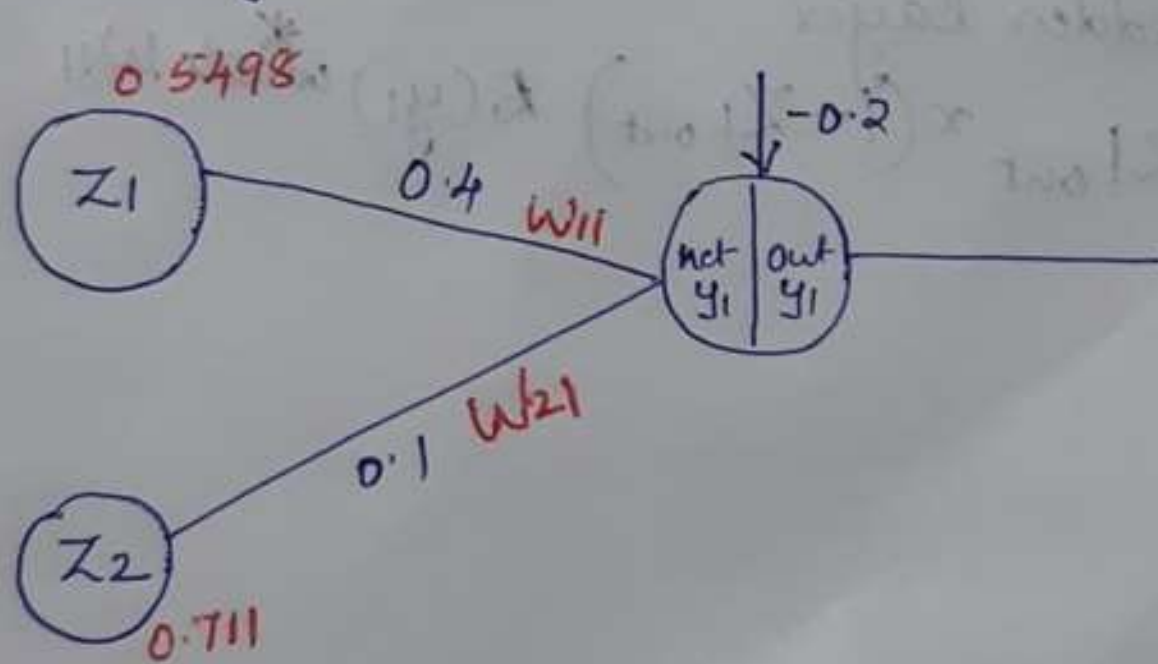 0.5498
Z1
0.4
W11
-0.2
net y1
out y1
W21
0.1
Z2
0.711